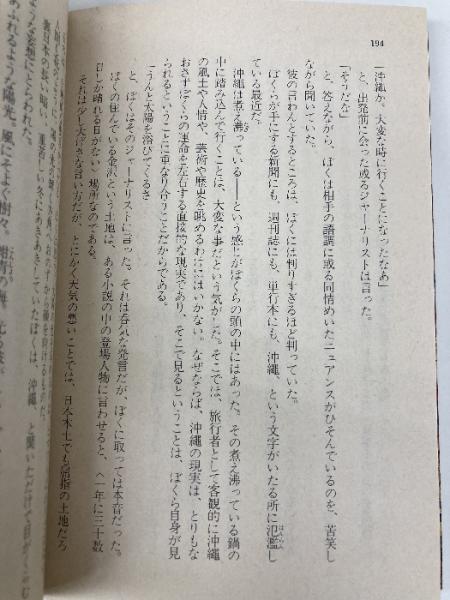 194
「沖縄か。大変な時に行くことになったなあ」
と、出発前に会った或るジャーナリストは言った。
「そうだな」
と、答えながら、ぼくは相手の語調に或る同情めいたニュアンスがひそんでいるのを、苦笑し
ながら聞いていた。
彼の言わんとするところは、ぼくには判りすぎるほど判っていた。
ぼくらが手にする新聞にも、週刊誌にも、単行本にも、沖縄、という文字がいたる所に氾濫し
ている最近だ。
沖縄は煮え沸っている――という感じがぼくらの頭の中にはあった。その煮え沸っている鍋の
中に踏み込んで行くことは、大変な事だという気がした。そこでは、旅行者として客観的に沖縄
の風土や人情や、芸術や歴史を眺めるわけにはいかない。なぜならば、沖縄の現実は、とりもな
おさずぼくらの運命を左右する直接的な現実であり、そこで見るということは、ぼくら自身が見
られるということに重なり合うことだからである。
「うんと太陽を浴びてくるさ」
と、ぼくはそのジャーナリストに言った。それは呑気な発言だが、ぼくに取っては本音だった。
ぼくの住んでいる金沢という土地は、ある小説の中の登場人物に言わせると、〈一年に三十数
日しか晴れる日がない〉場所なのである。
それは少し大げさな言い方だが、とにかく天気の悪いことでは、日本本土でも屈指の土地だろ
冬にあきあきしていたぼくは、沖縄、と聞いただけで目が
ような妄想にとらわれた。
あふれるような陽光。風にそよぐ樹々。紺青の海。